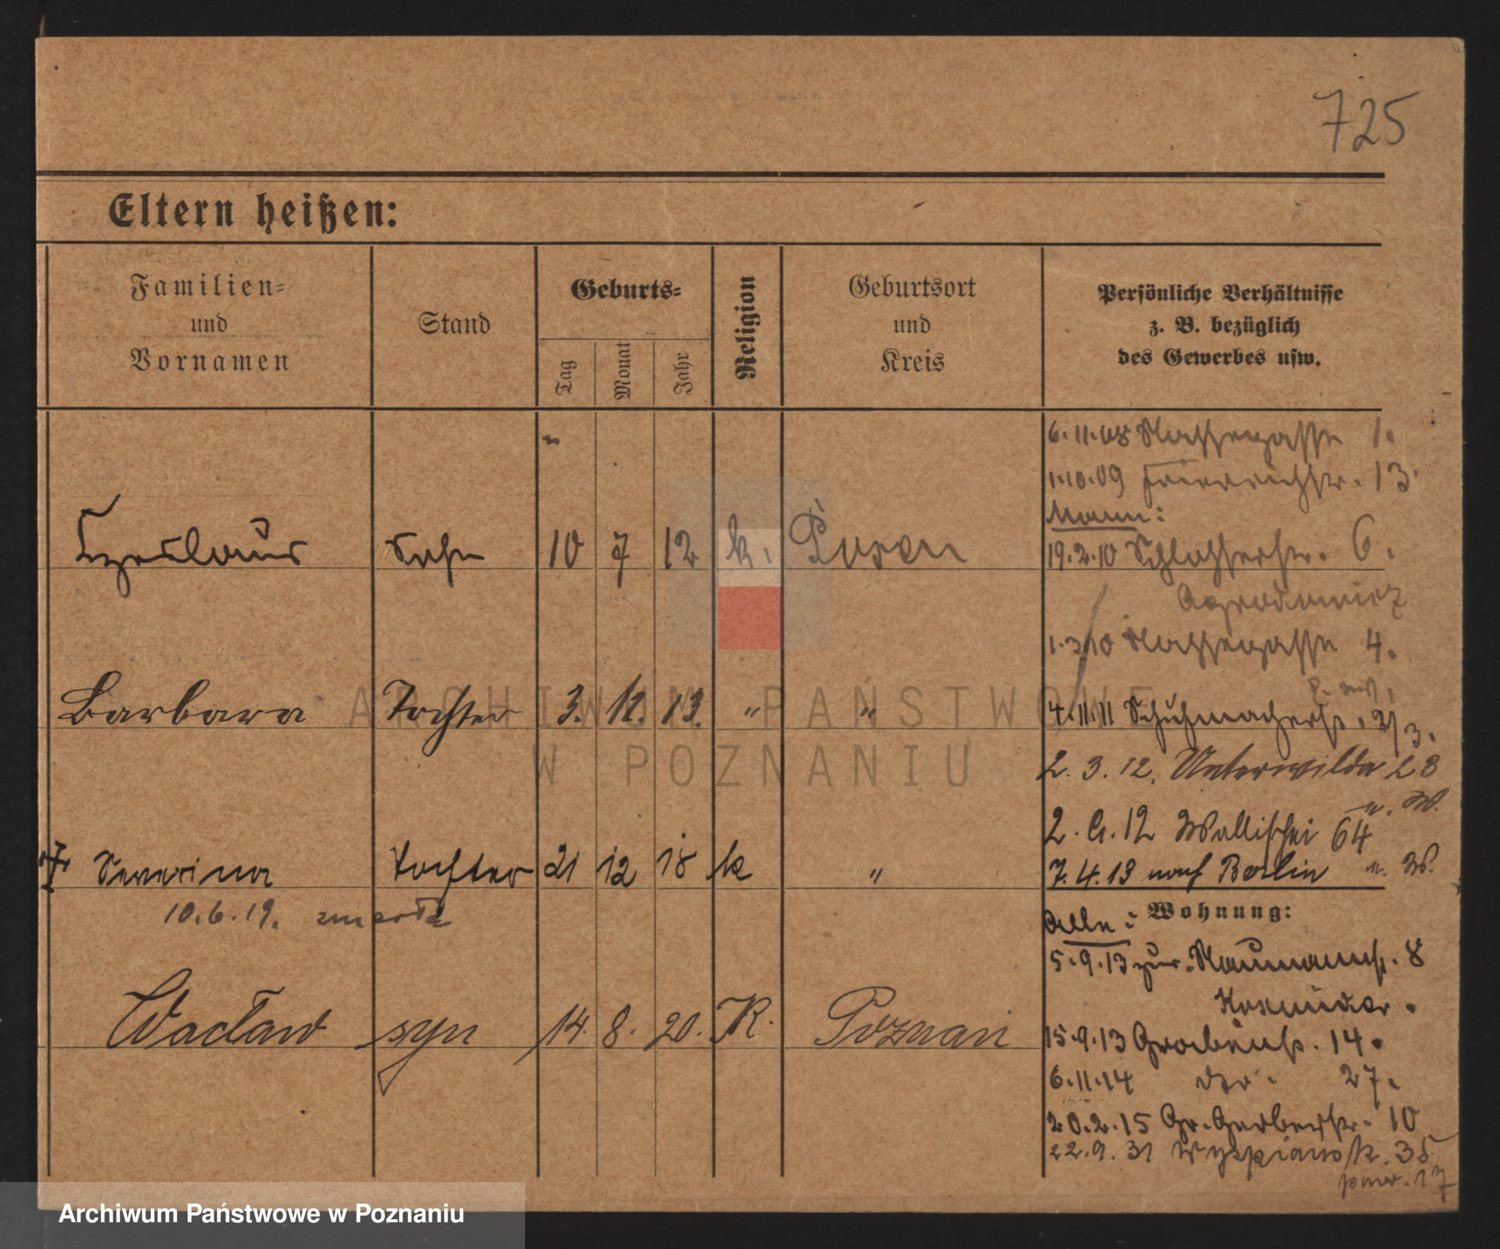 725
Eltern heißen:
Familien-
und
Vornamen
Stand
Geburts-
Tag
Monat
Jahr
Religion
Geburtsort
und
Kreis
Persönliche Verhältnisse
z. B. bezüglich
des Gewerbes usw.
6.11.08 Nassegasse 1.
1.10.09 Friedrichstr. 13.
Mann:
Czeslaus Sohn 10 7 12 k. Posen
19.2.10 Schlosserstr. 6.
1.3.10 Nassegasse 4.
Barbara Tochter 3. 12. 13. " "
4.11.11 Schuhmacherstr. 2/3.
2. 3. 12. Unterwilda 28
u. W.
2. 4. 12 Wallischei 64
Severina Tochter 21 12 18 k "
7.4.13 nach Berlin u. W.
10.6.19. zmarła
Wohnung:
Alle:
5.9.13 zur. Naumannstr. 8
Wacław syn 14. 8. 20. K. Poznań
15.9.13 Grabenstr. 14.
6.11.14 dto. 27.
20.2.15 Gr. Gerberstr. 10
22.9.31 35
17
ARCHIWUM PAŃSTWOWE
W POZNANIU
Archiwum Państwowe w Poznaniu